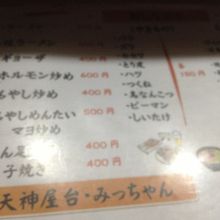 ラーメン
ギョーザ 400円
ホルモン炒め 600円
もやし炒め 400円
もやしめんたい 500円
マヨ炒め
ん足 400円
子焼き 400円
・とり皮
・ハツ
・つくね
・馬なんこつ
・ピーマン
・しいたけ
各
180円
天神屋台・みっちゃん